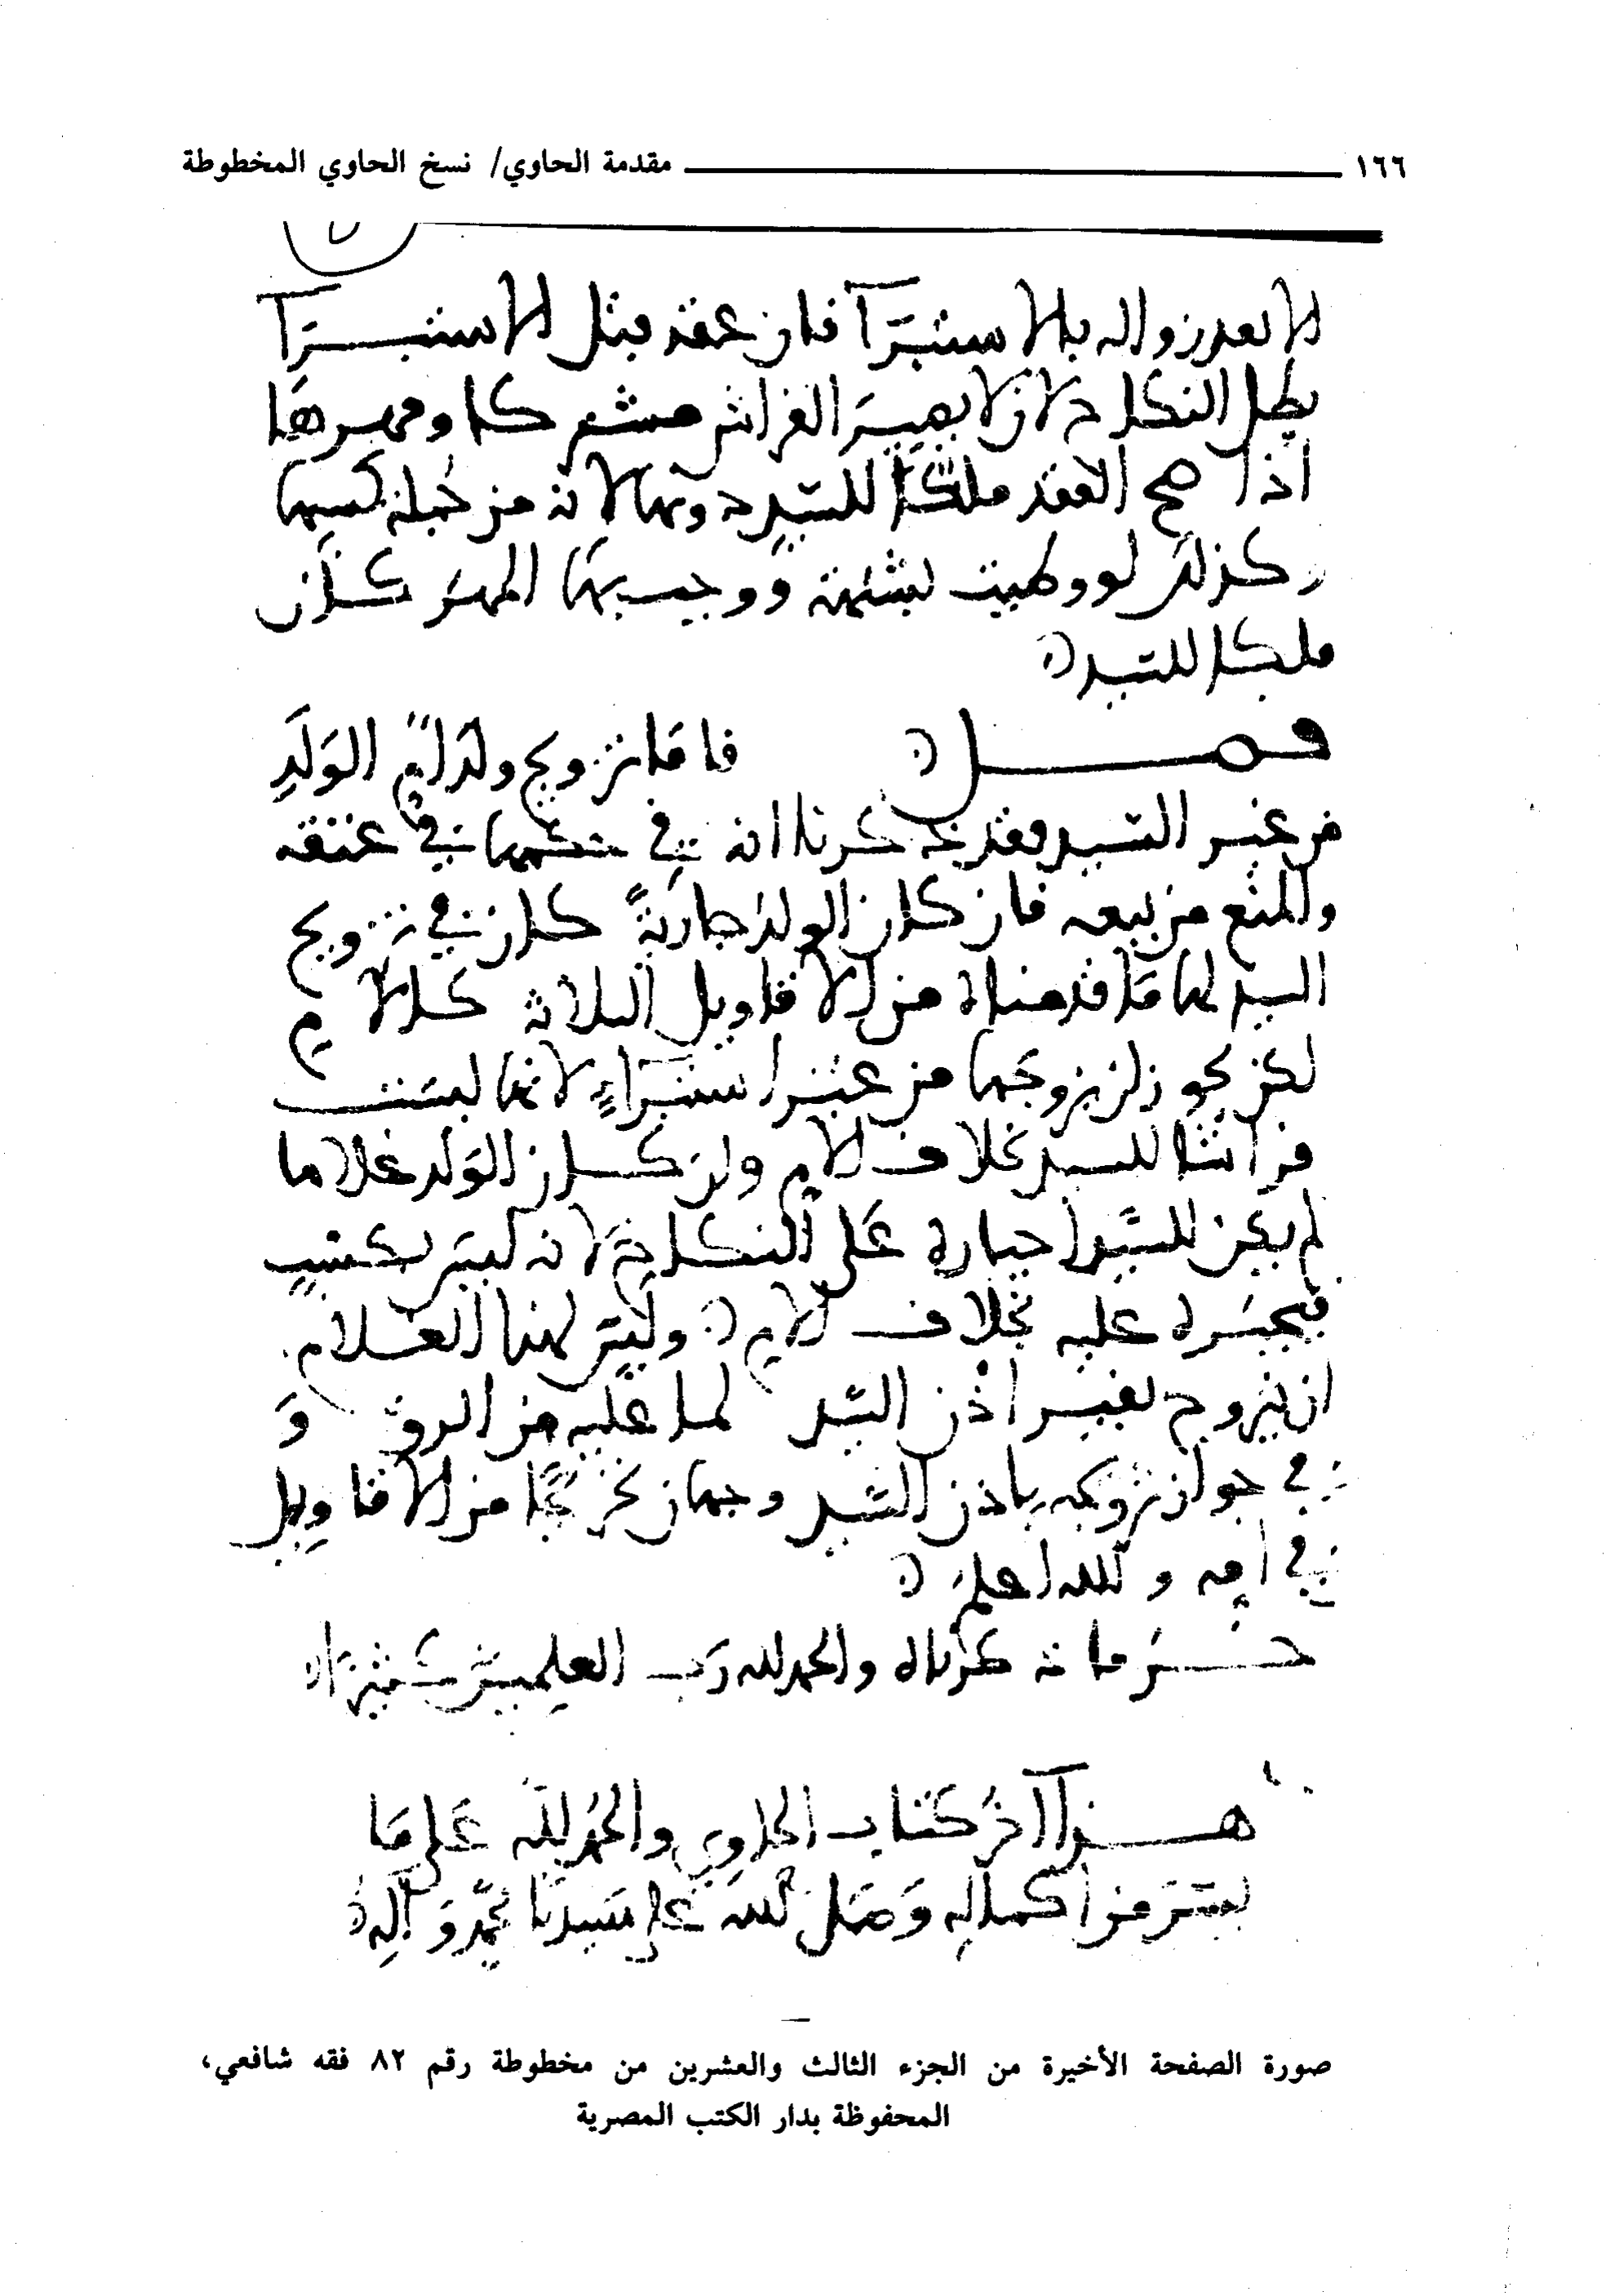 ١٦٦ مقدمة الحاوي/ نسخ الحاوي المخطوطة
الا بعد زواله بالاستبرآ فان عقد قبل الاستبرآ
بطل النكاح لان لا يصير الفراش مشتركا ومهرها
اذا صح العقد ملكا للسيد دونها لانه من جملة كسبها
وكذلك لو وطيت بشبهة ووجب بها المهر كان
ملكا للسيد
فصل فاما تزويج ولد ام الولد
من غير السيد فقد ذكرنا انه في حكمها في عتقه
والمنع من بيعه فان كان الولد جارية كان في تزويج
السيد لها ما قدمناه من الاقاويل الثلاثة كالام
لكن يجوز ان يزوجها من غير استبراء لانها ليست
فراشا للسيد بخلاف الام وان كان الولد غلاما
لم يكن للسيد اجباره على النكاح لانه ليس بكسب
فيجبره عليه بخلاف الام وليس لهذا الغلام
ان يتزوج بغير اذن السيد لما عليه من الرق و
في جواز تزويجه باذن السيد وجهان تخريجا من الاقاويل
في امه والله اعلم
اخر ما ذكرناه والحمد لله رب العلمين كثيرا
هذا آخر كتاب الحاوي والحمد لله على ما
يسر من اكماله وصلى الله على سيدنا محمد وآله
صورة الصفحة الأخيرة من الجزء الثالث والعشرين من مخطوطة رقم ٨٢ فقه شافعي،
المحفوظة بدار الكتب المصرية